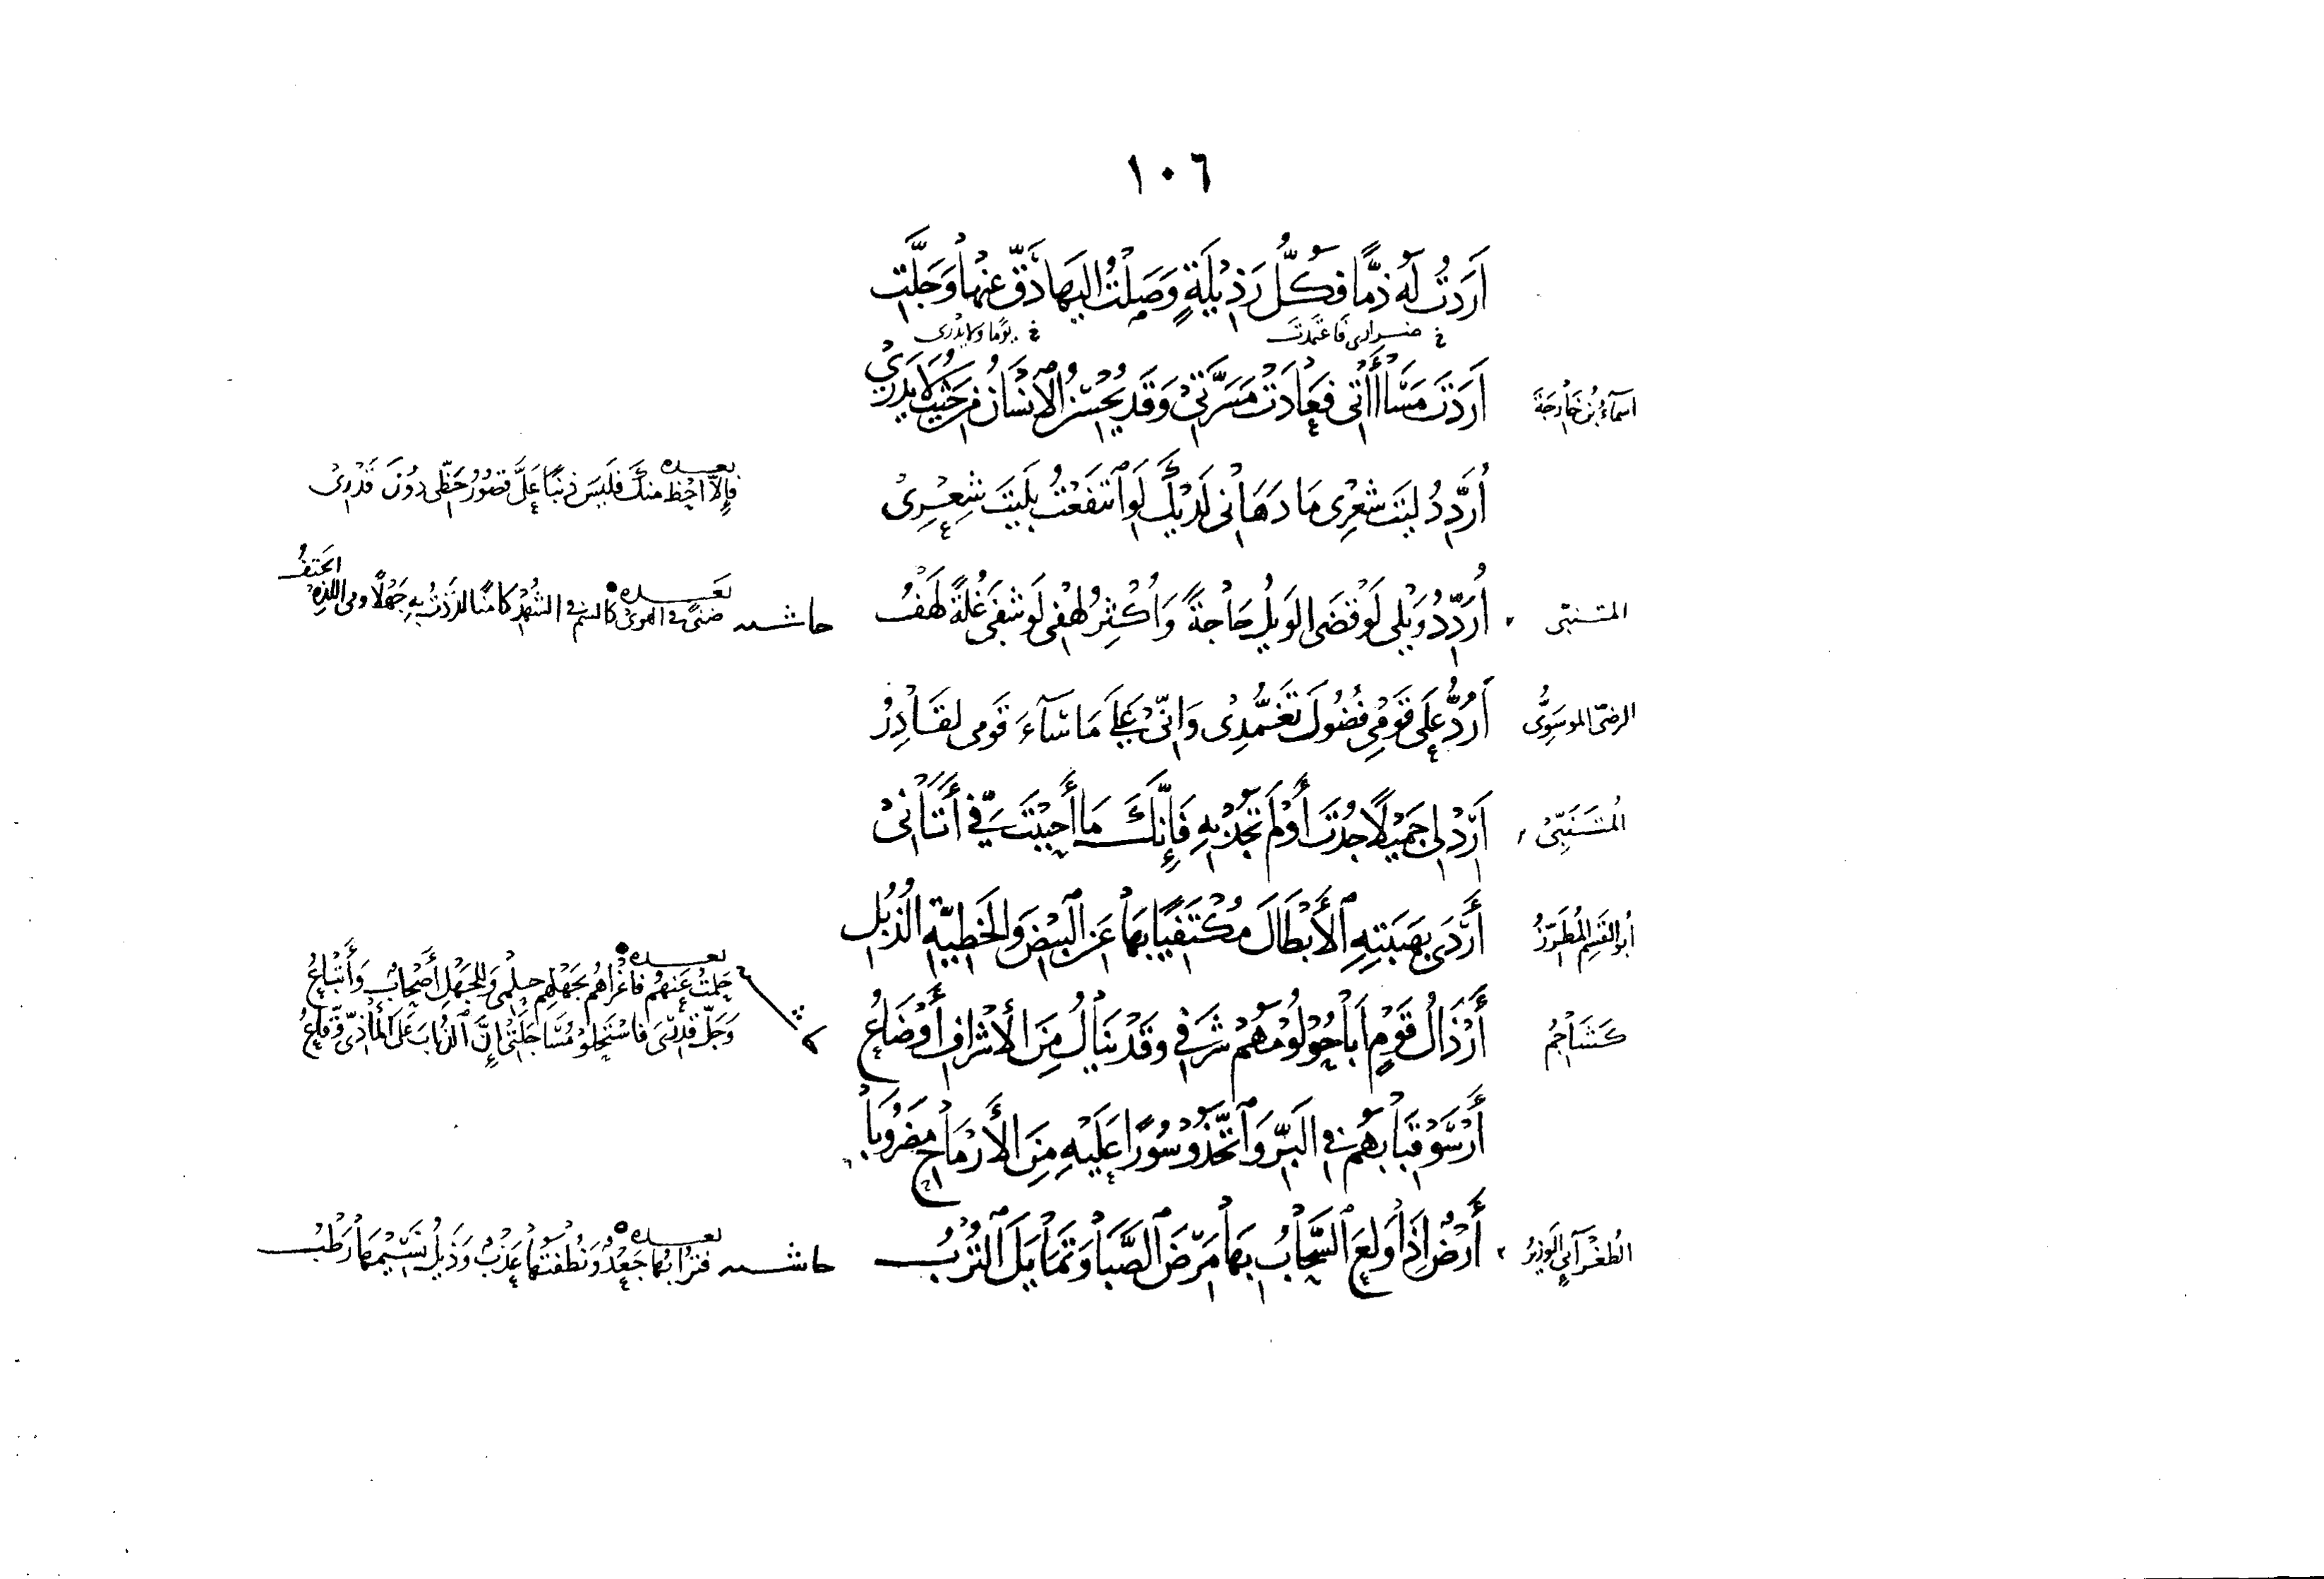 ١٠٦
أَرَدْتُ لَهُ ذَمًّا فَكُلُّ رَذِيْلَةٍ وَصَلْتُ إِلَيهَا دَقَّ عَنْهَا وَجَلَّتِ
خ ضراری فَاعْتَمَدْتَ خ يَوْمًا وَلَا يَدْرِي
أَسْمَاءُ بْنُ خَارِجَةَ أَرَدْتَ مَسَاأَتِي فَعَادَتْ مَسَرَّتِيْ وَقَدْ يُحْسِنُ الْاِنْسَانُ مِنْ حَيْثُ لَا يَدْرِيْ
أُرَدِّدُ لَيْتَ شِعْرِي مَا دَهَانِي لَدَيْكَ لَوِ انْتَفَعْتُ بِلَيْتَ شِعْرِيْ
بعده
فَإِلَّا أَحْظَ مِنْكَ فَلَيْسَ ذَنْبًا عَلَيَّ قُصُوْرُ حَظِّي دُوْنَ قَدْرِيْ
المتنبّي أُرَدِّدُ وَيْلِي لَوْ قَضَى الوَيْلُ حَاجَةً وَأُكْثِرُ لَهْفِي لَوْ شَفَى غُلَّةً لَهْفُ
حاشیه بعده
ضَنًى فِي الهَوَى كَالسُّمِّ فِي الشُّهْدِ كَامِنًا لَذَذْتُ بِهِ جَهْلًا وَفِي اللَّذَّةِ الحَتْفُ
الرضيّ الموسويُّ أَرُدُّ عَلَى قَوْمِي فُضُولَ تَغَمُّدِي وَإِنِّيْ عَلَى مَا سَآءَ قَومِي لَقَادِرُ
المُتَنَبِّيْ أَرِدْ لِي جَمِيْلًا جُدْتَ أَوْ لَمْ تَجُدْ بِهِ فَإِنَّكَ مَا أَحْبَبْتَ فِيَّ أَتَانِيْ
أبو القَسِمِ المُطَرِّزُ أَرْدَى بِهَيْبَتِهِ الأَبْطَالَ مُكْتَفِيًا بِهَا عَنِ البِيْضِ وَالخَطِيَّةِ الذُّبُلِ
كَشَاجِمُ أَرْذَالُ قَوْمٍ أَبَاحُوْ لُوْمُهُمْ شَرَفِي وَقَدْ يَنَالُ مِنَ الأَشْرَافِ أَوْضَاعُ
بعده
حَلُمْتُ عَنْهُم فَأَغْرَاهُم بِجَهْلِهِم حِلْمِي وَلِلجَهْلِ أَصْحَابٌ وَأَتْبَاعُ
وَجَلَّ قَدْرِي فَاسْتَحْلَوْ مُسَاجَلَتِي إِنَّ الذُّبَابَ عَلَى المَاذِيِّ وَقَّاعُ
أَرْسَوْ قِبَابَهُمُ فِي البَرِّ وَاتَّخَذُوْ سُوْرًا عَلَيْهِ مِنَ الأَرْمَاحِ مَضْرُوبَا
الطُغْرَآئيُّ الوَزِيرُ أَرْضٌ إِذَا وَلِعَ السَّحَابُ بِهَا مَرِضَ الصَّبَا وَتَمَايَلَ التُّرْبُ
حاشیه بعده
فَتُرَابُهَا جَعْدٌ وَنُطْفَتُهَا عَذْبٌ وَذَيْلُ نَسِيْمِهَا رَطْبُ